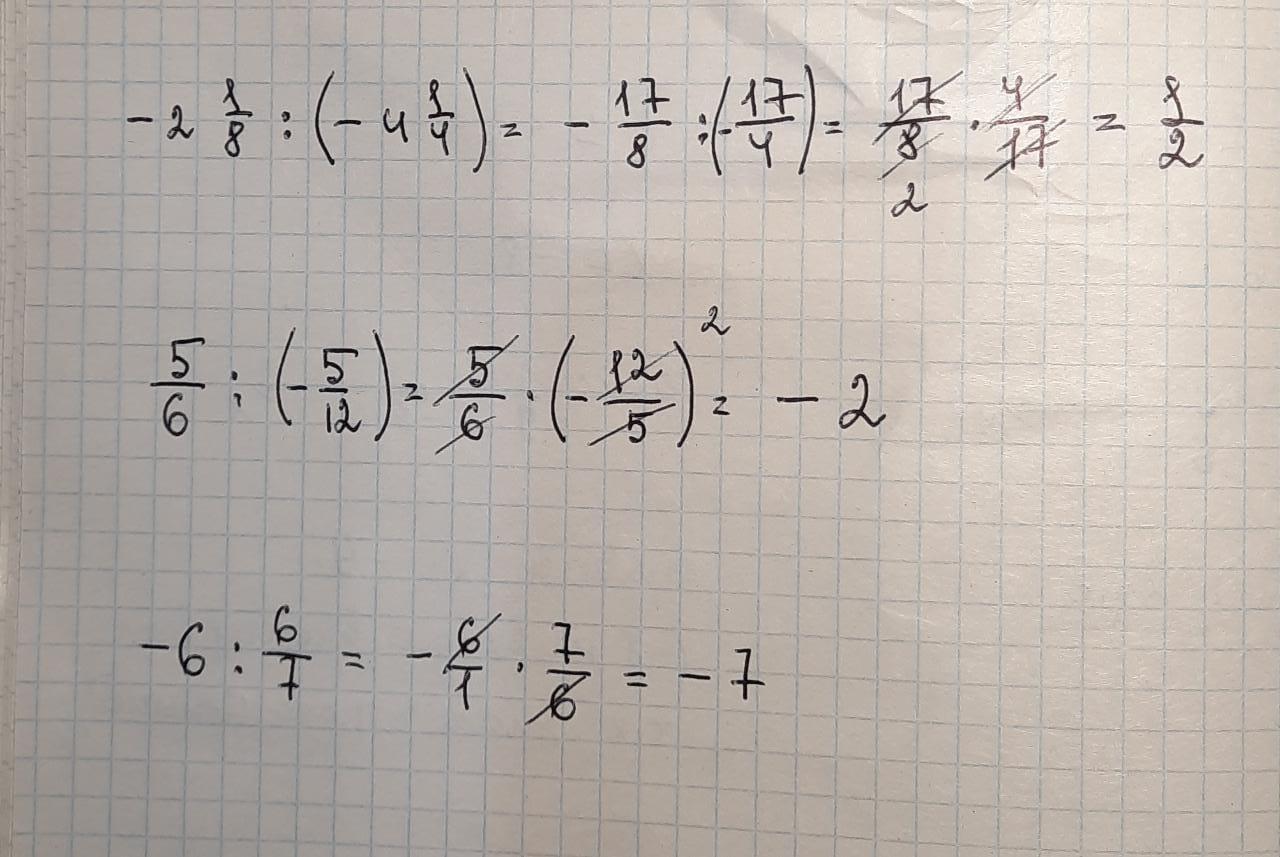 -2 1/8 : (-4 1/4) = - 17/8 : (- 17/4) = 17/8 · 4/17 = 1/2
2
2
5/6 : (- 5/12) = 5/6 · (- 12/5) = - 2
-6 : 6/7 = - 6/1 · 7/6 = - 7